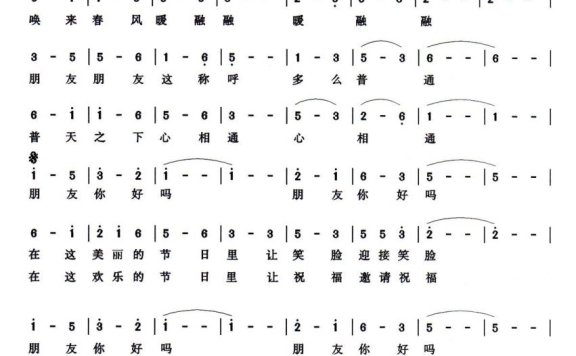 唤来春风暖融融 暖融融
3 - 5 | 5 - 6 | 1 - 6 | 5 - - | 1 - 3 | 5 - 3 | 6 - - | 6 - - |
朋友朋友这称呼 多么普通
6 - i | i - 6 | 5 - 6 | 3 - - | 5 - 3 | 2 - 6 | 1 - - | 1 - - |
普天之下心相通 心相通
i - 5 | 3 - 2 | i - - | i - - | 2 - i | 6 - 3 | 5 - - | 5 - - |
朋友你好吗 朋友你好吗
6 - i | 2 i 6 | 5 - 6 | 3 - 3 | 5 - 5 | 5 5 3 | 2 - - | 2 - - |
在这美丽的节日里让笑脸迎接笑脸
在这欢乐的节日里让祝福邀请祝福
i - 5 | 3 - 2 | i - - | i - - | 2 - i | 6 - 3 | 5 - - | 5 - - |
朋友你好吗 朋友你好吗